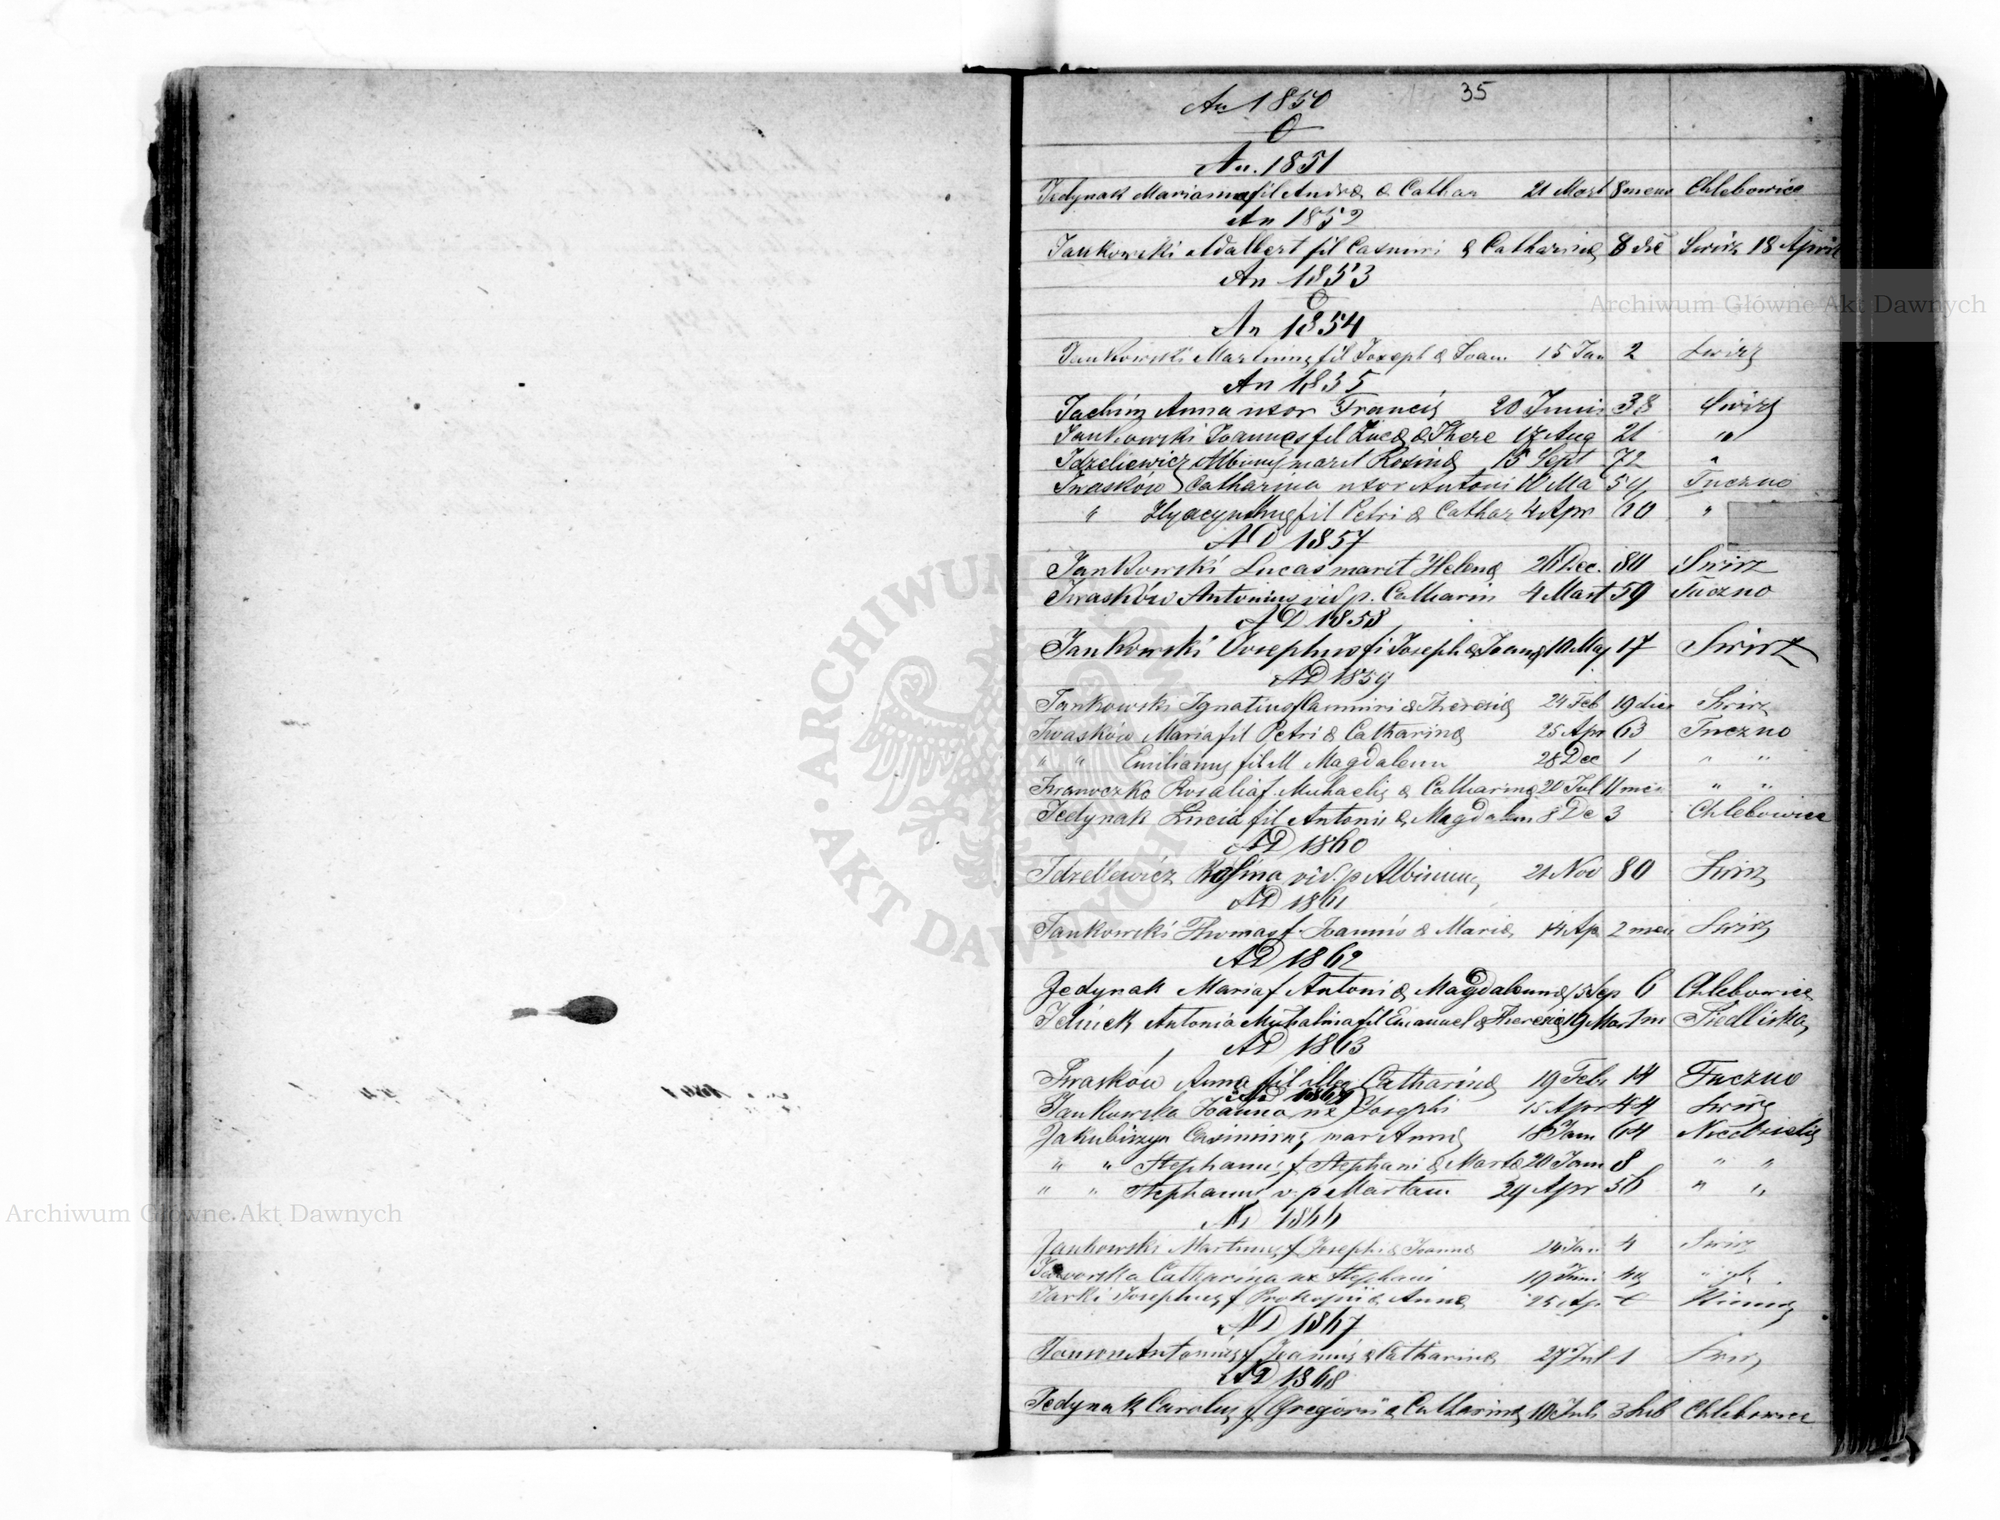 35
An 1850
0
An. 1851
Jedynak Marianna fil Andreæ & Cathar 21 Mart 8 mens Chlebowice
An 1852
Jankowski Adalbert fil Casimiri & Catharinæ 8 die Swirz 18 April
An 1853
0
An 1854
Jankowski Martinus fil Joseph & Joan 15 Jan 2 Swirz
An 1855
Jachim Anna uxor Francis 20 Junii 38 Swirz
Jankowski Joannes fil Lucæ & There 17 Aug 21 "
Idzeliewicz Albinus marit Rosinæ 15 Sept 72 "
Iwasków Catharina uxor Antoni Ma 54 Tuczno
" Hyacynthus fil Petri & Cathar 4 Apr 60 "
AD 1857
Jankowski Lucas marit Helenæ 26 Dec. 80 Swirz
Iwasków Antonius vid. p. Catharin 4 Mart 59 Tuczno
AD 1858
Jankowski Josephus fi Joseph & Joannæ 10 May 17 Swirz
AD 1859
Jankowski Ignatius f Casimiri & Theresiæ 24 Feb 19 dies Swirz
Iwasków Maria fil Petri & Catharinæ 25 Apr 63 Tuczno
" " Emilianus fil M Magdalena 28 Dec 1 " "
Rosalia f. Michaelis & Catharinæ 20 Jul 11 " "
Jedynak Lucia fil Antonii & Magdalen 8 De 3 Chlebowice
AD 1860
Idzellewicz Rosina vid. p Albinum 21 Nov 80 Swirz
AD 1861
Jankowski Thomas f. Joannis & Mariæ 14 Ap 2 men Swirz
AD 1862
Jedynak Maria f Antoni & Magdalenæ 15 Sep 6 Chlebowice
Jelinek Antonia Michalina fil Emanuel & Theresiæ 19 Mar 1 m Siedliska
AD 1863
Iwasków Anna fil illeg Catharinæ 19 Febr 14 Tuczno
AD 1864
Jankowska Joanna ux Josephi 15 Apr 44 Swirz
Jakubiszyn Casimirus mar Annæ 18 Jan 64 Niedzielis
" " Stephanus f Stephani & Martæ 20 Jan 8 " "
" " Stephanus v. p Martam 29 Apr 56 " "
AD 1866
Jankowski Martinus f Josephi & Joannæ 24 Jan 4 Swirz
Jaworska Catharina ux Stephani 19 Juni
Jarki Josephus f Prokopii & Annæ 25 Ap
AD 1867
Antonius f Joannis & Catharinæ 27 Jul 1 Swirz
AD 1868
Jedynak Carolus f Gregorii & Catharinæ 10 Juli 3 Chlebowice
Archiwum Główne Akt Dawnych
Archiwum Główne Akt Dawnych
ARCHIWUM GŁÓWNE AKT DAWNYCH